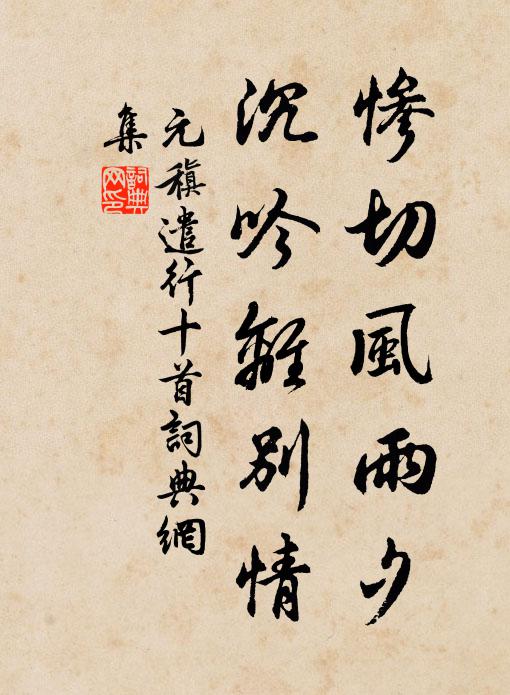 惨切風雨夕
沉吟離別情
元稹遣行十首詞典網
集
詞典
网印